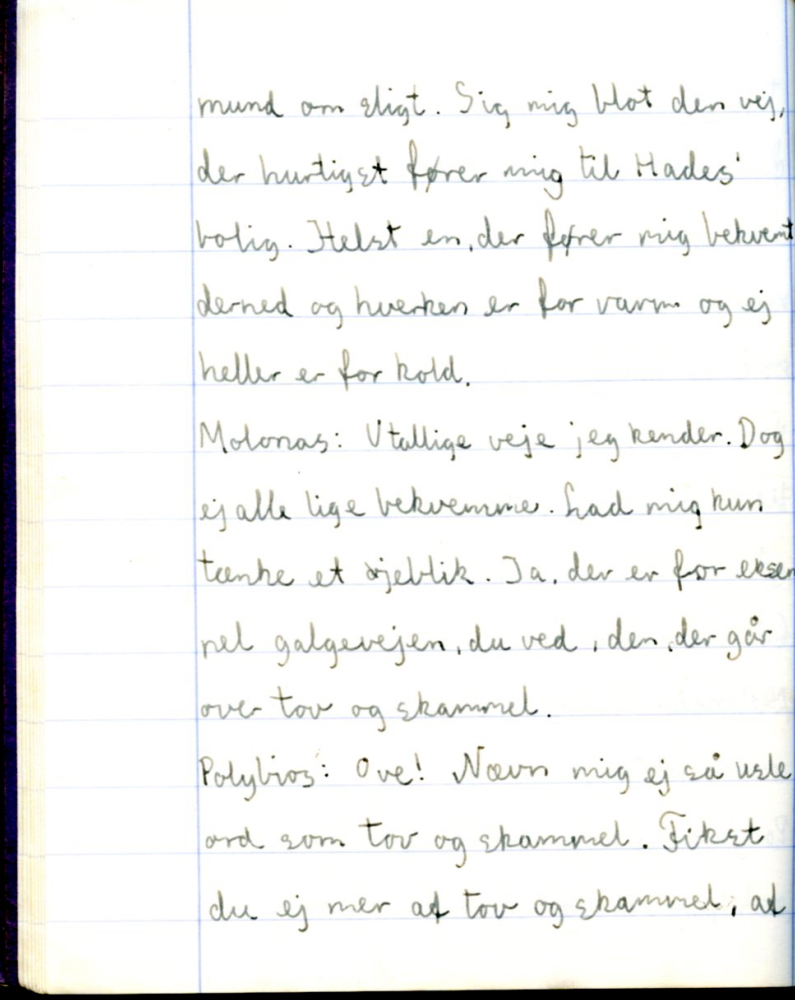 mund om sligt. Sig mig blot den vej,
der hurtigst fører mig til Hades'
bolig. Helst en, der fører mig bekvemt
derned og hverken er for varm og ej
heller er for kold.
Molonas: Utallige veje jeg kender. Dog
ej alle lige bekvemme. Lad mig kun
tænke et øjeblik. Ja, der er for eksem
pel galgevejen, du ved, den, der går
over tov og skammel.
Polybios: Ove! Nævn mig ej så usle
ord som tov og skammel. Fikst
du ej mer af tov og skammel, af